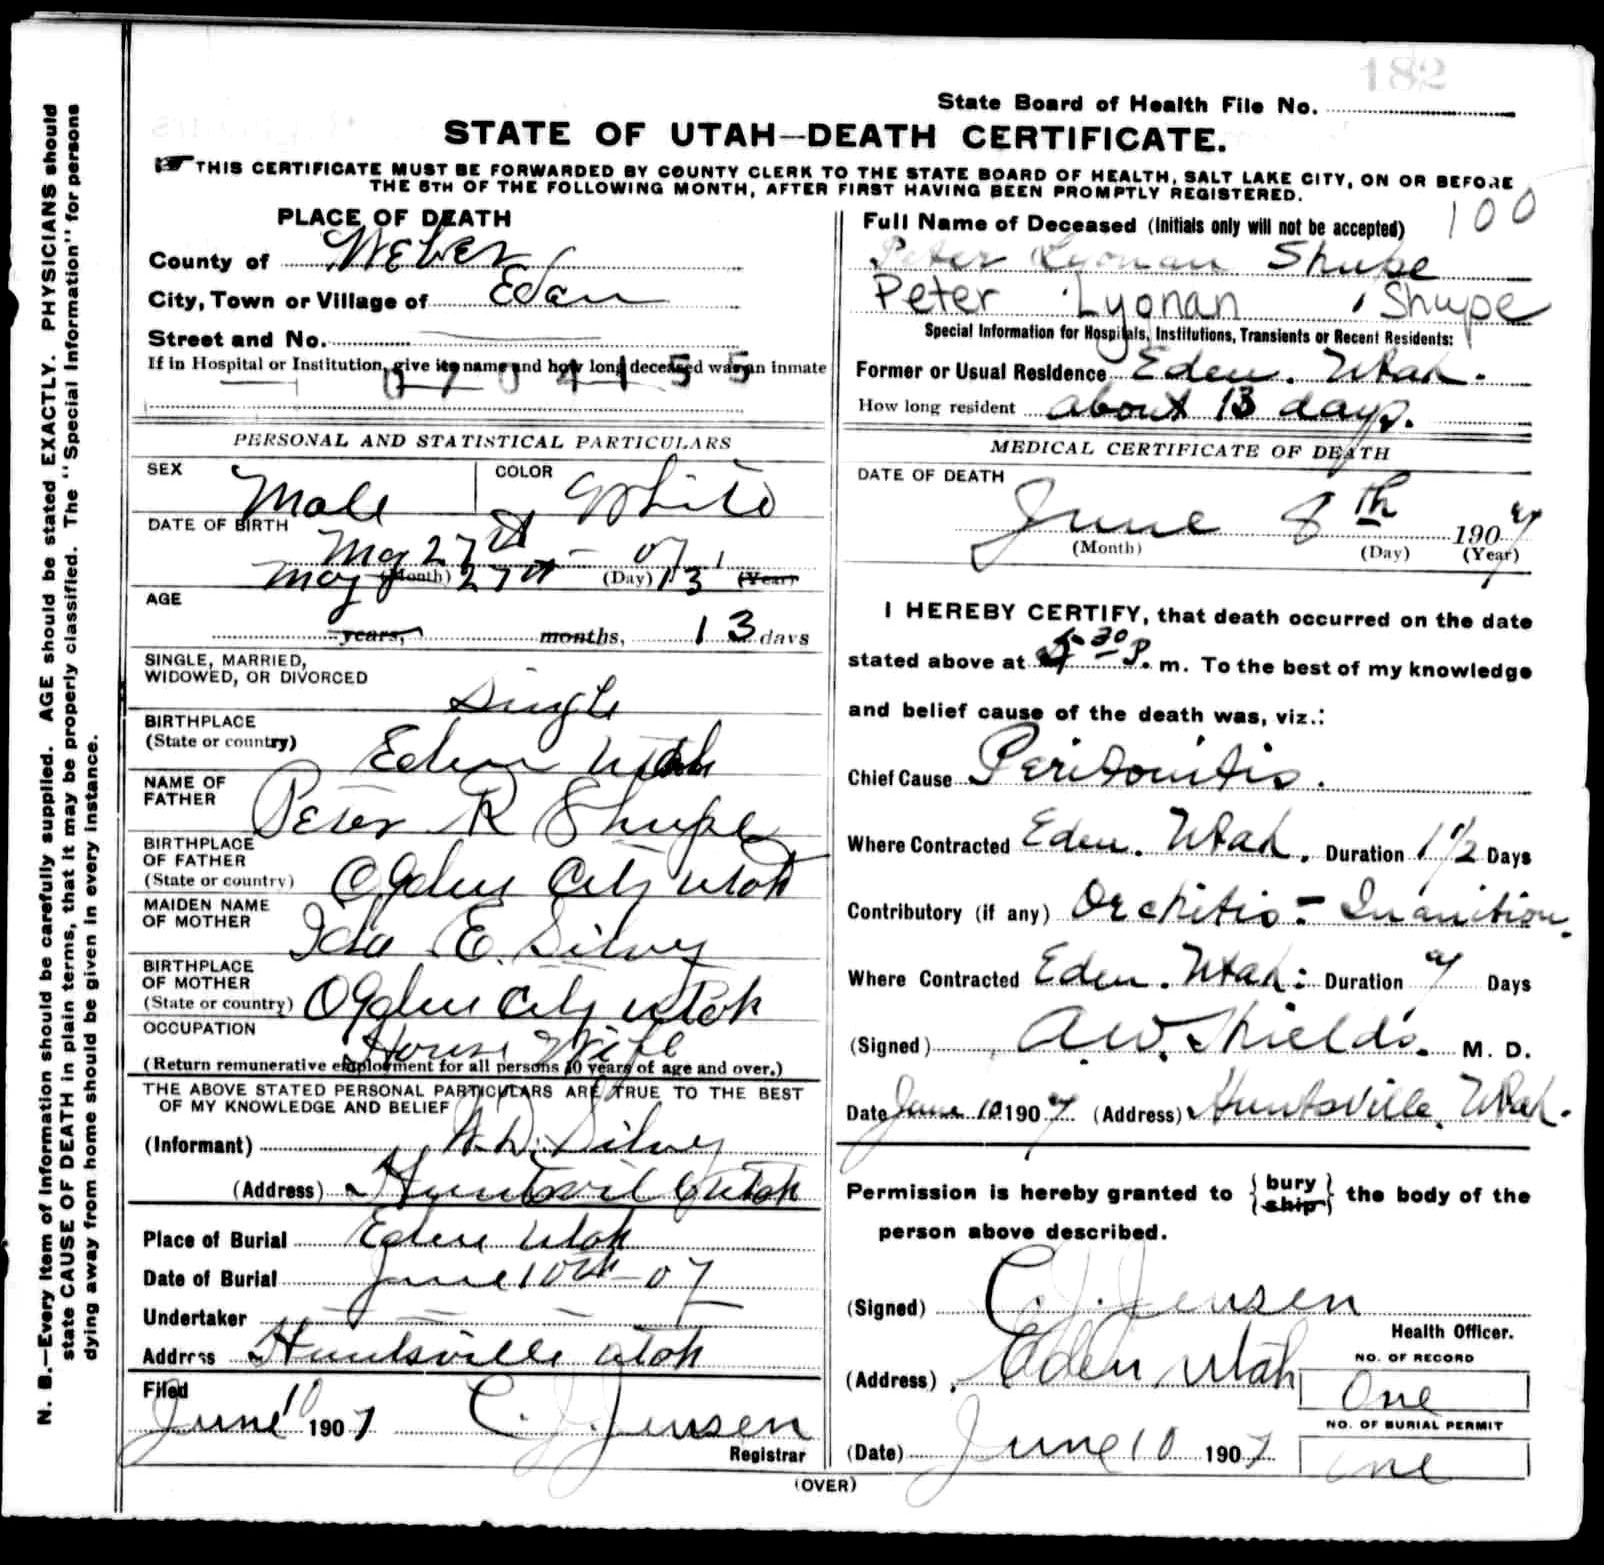 182
State Board of Health File No.
STATE OF UTAH—DEATH CERTIFICATE.
THIS CERTIFICATE MUST BE FORWARDED BY COUNTY CLERK TO THE STATE BOARD OF HEALTH, SALT LAKE CITY, ON OR BEFORE
THE 5TH OF THE FOLLOWING MONTH, AFTER FIRST HAVING BEEN PROMPTLY REGISTERED.
100
PLACE OF DEATH
County of Weber
City, Town or Village of Eden
Street and No.
If in Hospital or Institution, give its name and how long deceased was an inmate
PERSONAL AND STATISTICAL PARTICULARS
SEX Male COLOR White
DATE OF BIRTH
May 27th - 07
May 27th 13
(Month) (Day) (Year)
AGE
years, months, 13 days
SINGLE, MARRIED,
WIDOWED, OR DIVORCED
Single
BIRTHPLACE
(State or country)
Eden Utah
NAME OF
FATHER
Peter R Shupe
BIRTHPLACE
OF FATHER
(State or country) Ogden City Utah
MAIDEN NAME
OF MOTHER
Ida E. Silvey
BIRTHPLACE
OF MOTHER
(State or country) Ogden City Utah
OCCUPATION
House Wife
(Return remunerative employment for all persons 10 years of age and over.)
THE ABOVE STATED PERSONAL PARTICULARS ARE TRUE TO THE BEST
OF MY KNOWLEDGE AND BELIEF
(Informant) Silvey
(Address) Huntsvile Utah
Place of Burial Eden Utah
Date of Burial June 10th - 07
Undertaker
Address Huntsville Utah
Filed
June 10 1907 C. J. Jensen
Registrar
Full Name of Deceased (Initials only will not be accepted)
Peter Lyonan Shupe
Peter Lyonan Shupe
Special Information for Hospitals, Institutions, Transients or Recent Residents:
Former or Usual Residence Eden. Utah.
How long resident about 13 days.
MEDICAL CERTIFICATE OF DEATH
DATE OF DEATH
June 8th 1907
(Month) (Day) (Year)
I HEREBY CERTIFY, that death occurred on the date
stated above at 30 P. m. To the best of my knowledge
and belief cause of the death was, viz.:
Chief Cause Peritonitis.
Where Contracted Eden. Utah. Duration 1 1/2 Days
Contributory (if any) Orchitis - Inanition.
Where Contracted Eden. Utah: Duration 7 Days
(Signed) A. W. Shields. M. D.
Date June 10 1907 (Address) Huntsville, Utah.
Permission is hereby granted to {bury ship} the body of the
person above described.
(Signed) C. J. Jensen
Health Officer.
(Address) Eden Utah
NO. OF RECORD
One
NO. OF BURIAL PERMIT
One
(Date) June 10 1907
(OVER)
N. B.—Every item of information should be carefully supplied. AGE should be stated EXACTLY. PHYSICIANS should
state CAUSE OF DEATH in plain terms, that it may be properly classified. The "Special Information" for persons
dying away from home should be given in every instance.